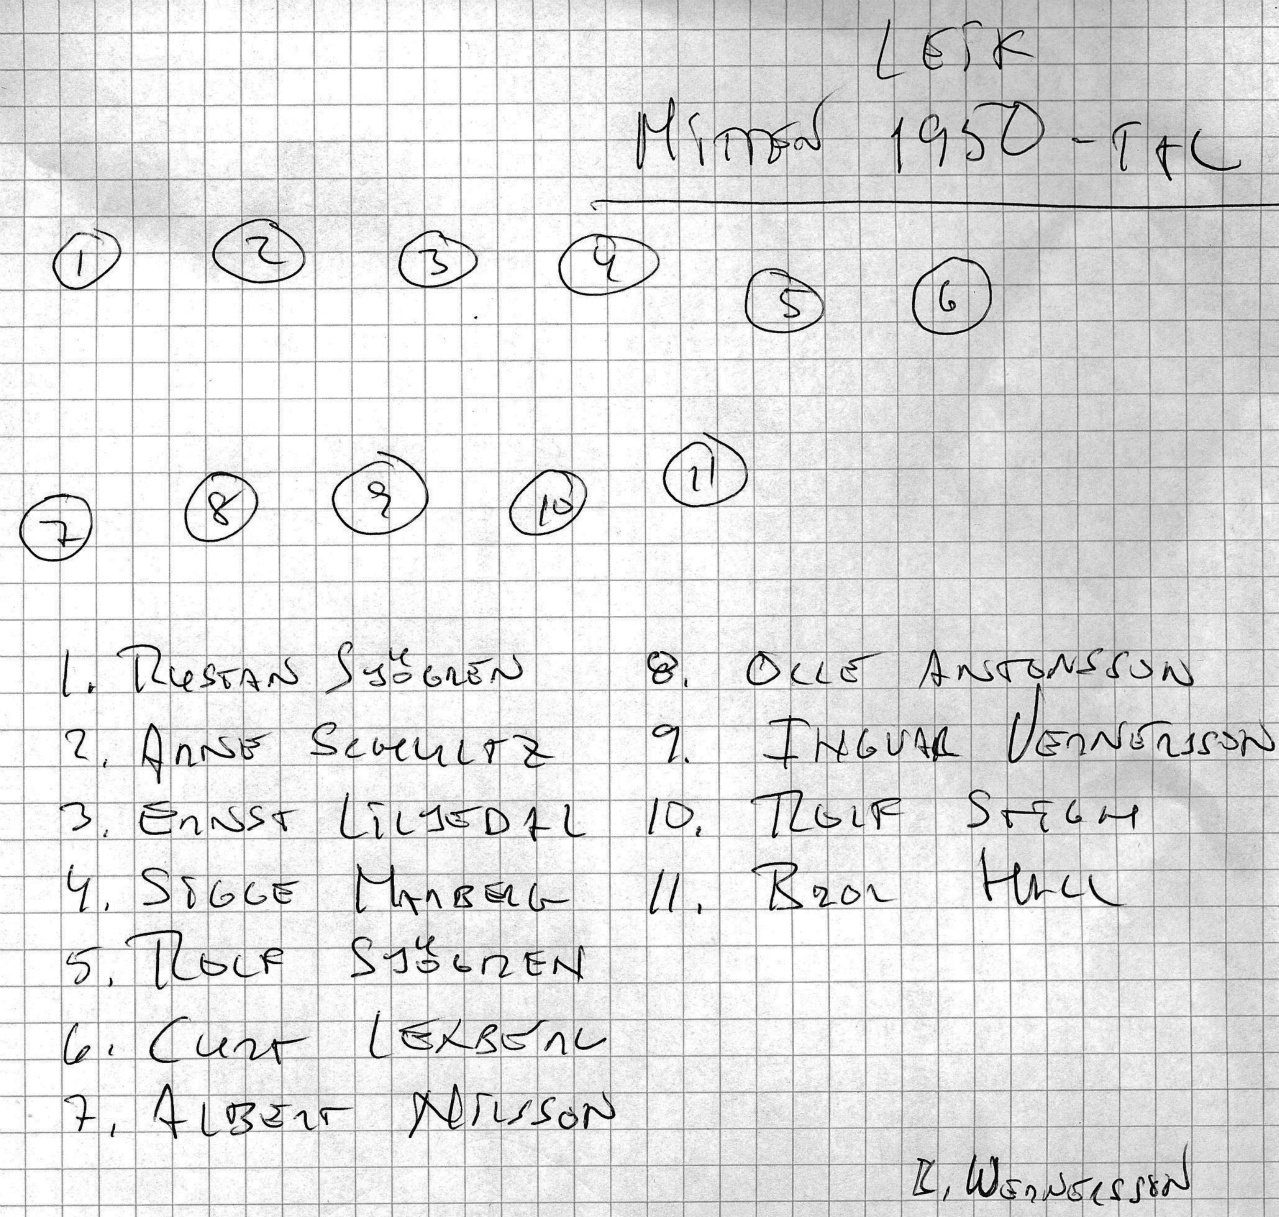 LESK
MITTEN 1950-TAL
1 2 3 4 5 6
7 8 9 10 11
1. RUSTAN SJÖGREN 8. OLLE ANTONSSON
2. ARNE SCHULTZ 9. INGVAR VERNERSSON
3. ERNST LILJEDAL 10. ROLF STIGH
4. SIGGE MARBERG 11. BROR HALL
5. ROLF SJÖGREN
6. CURT LEKBERG
7. ALBERT NILSSON
WERNERSSON